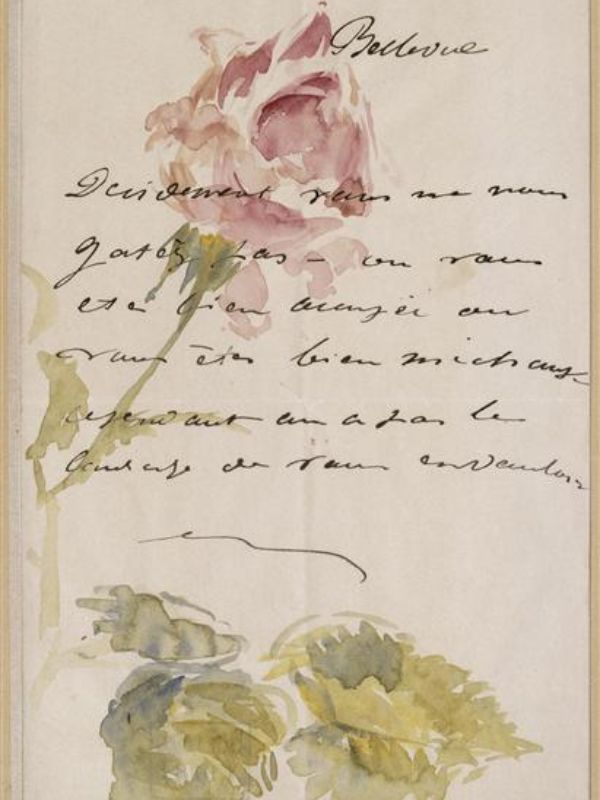 Bellevue
Decidement vous ne nous
gatéz pas — ou vous
etes bien occupée ou
vous êtes bien méchante
cependant on a pas le
courage de vous en vouloir